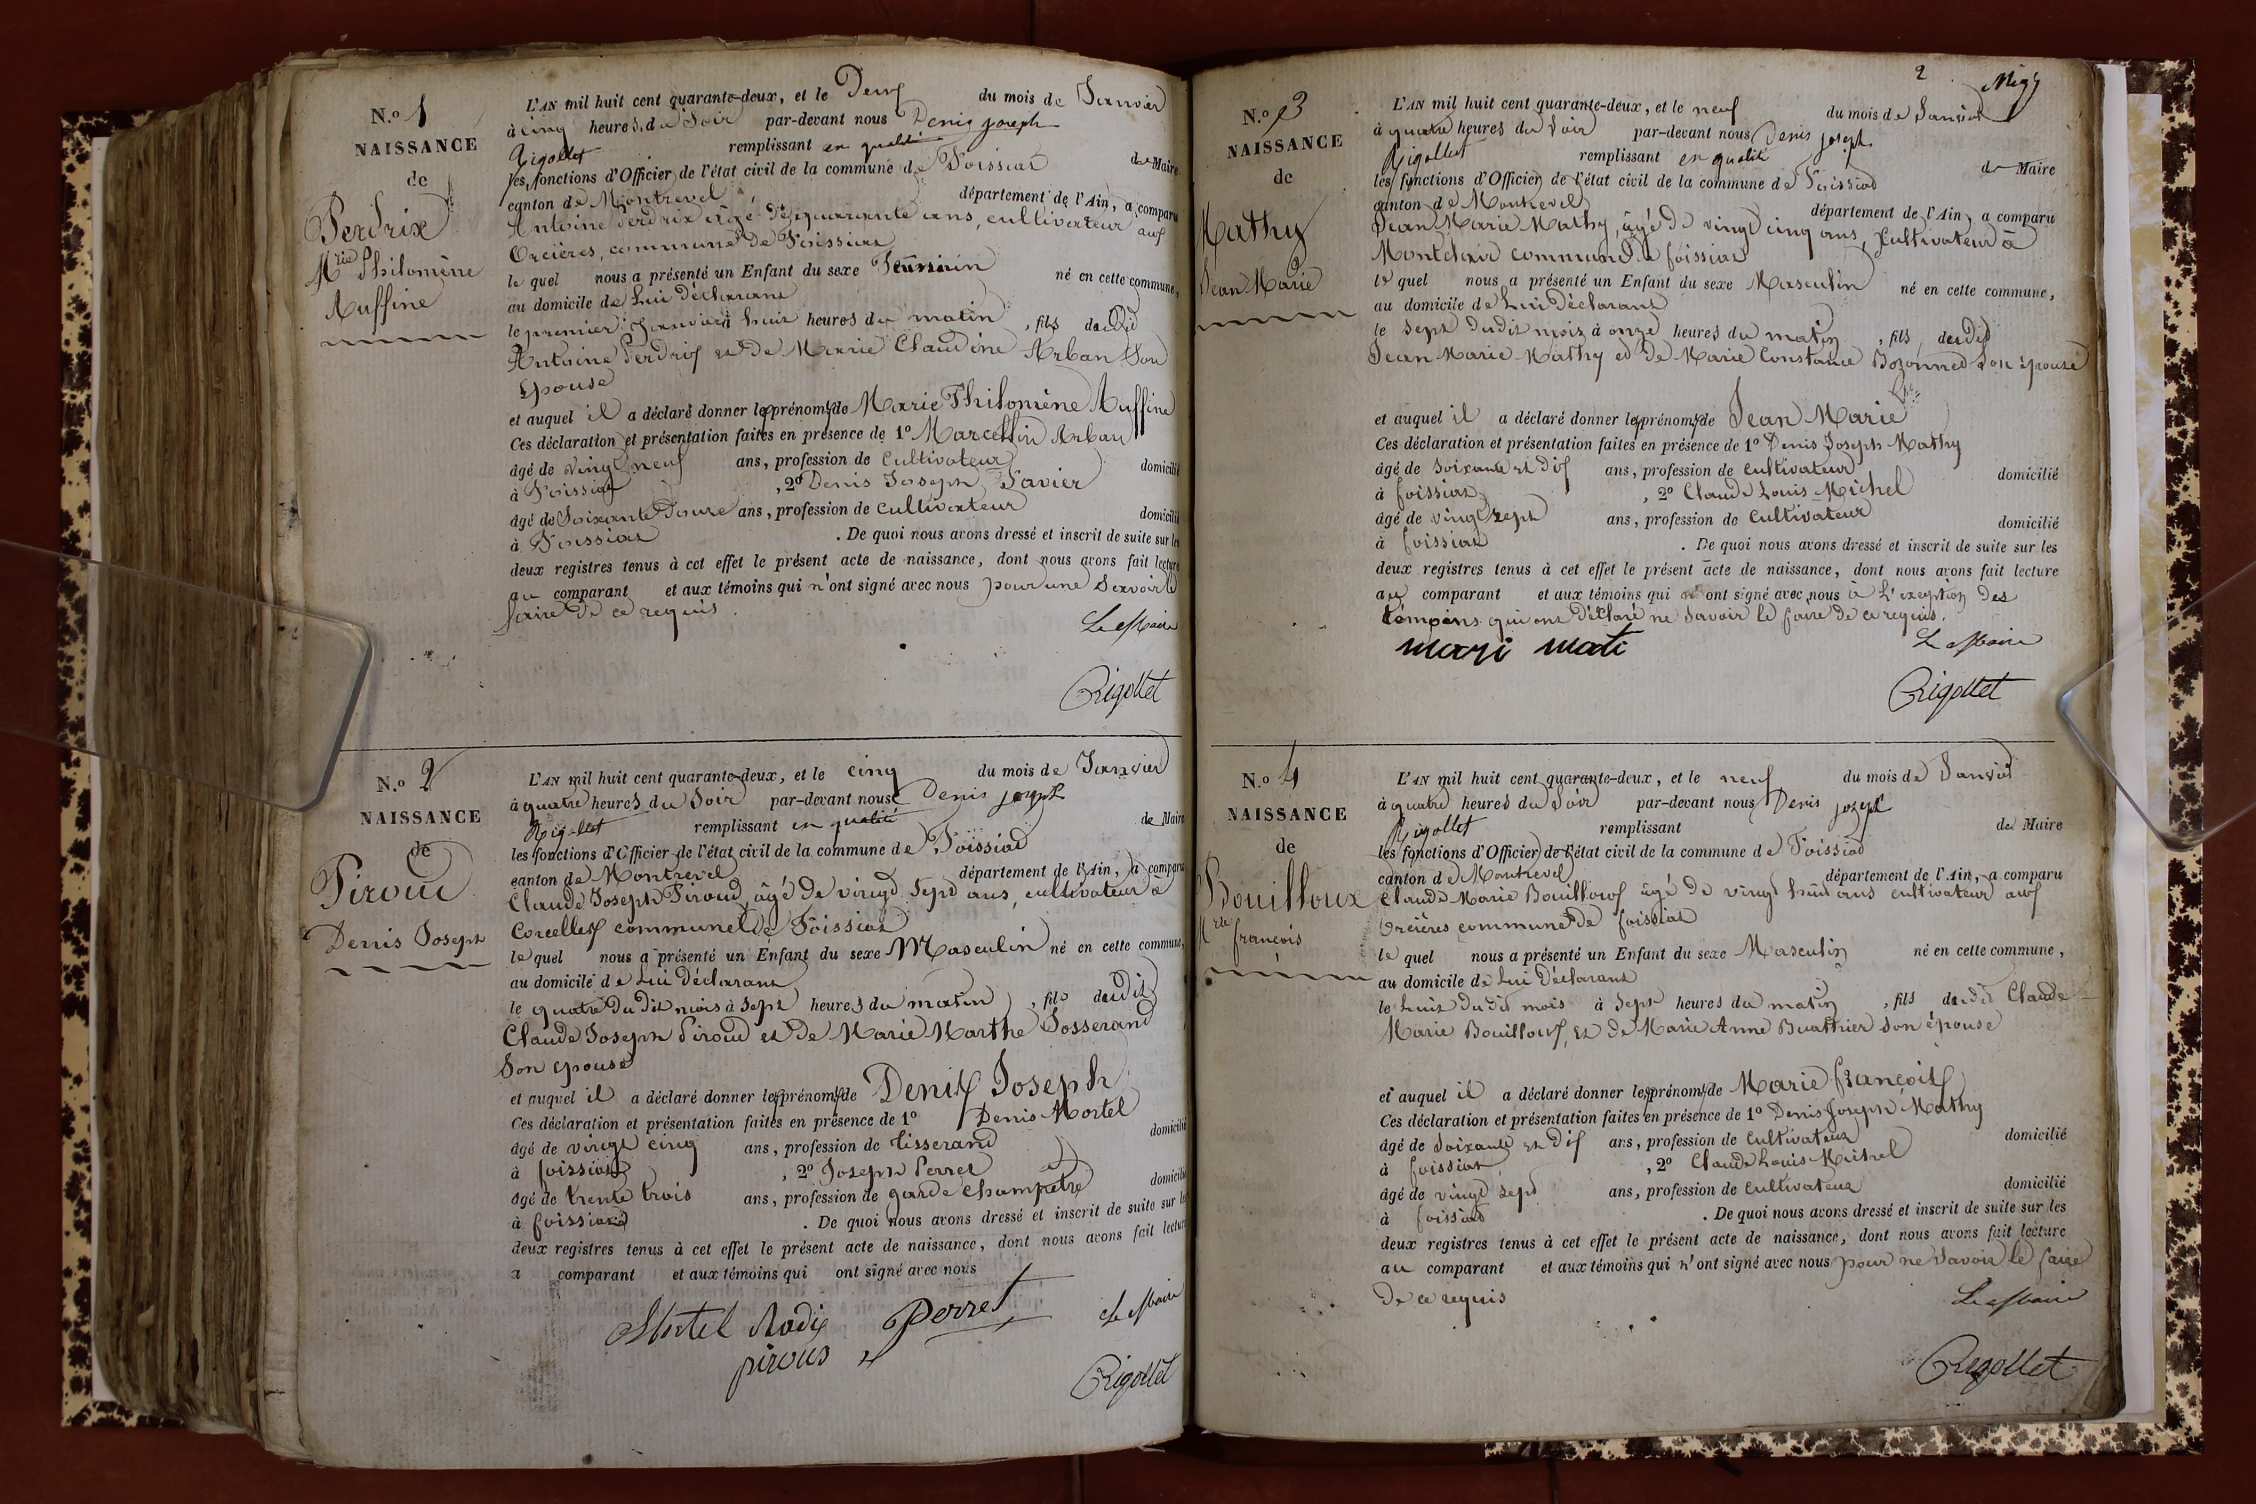 N.o 1
NAISSANCE
de
Perdrix
Mrie Philomène
Ruffine
L'AN mil huit cent quarante-deux, et le Deux du mois de Janvier
à cinq heures du Soir par-devant nous Denis joseph
Rigollet remplissant en qualité de Maire
les fonctions d'Officier de l'état civil de la commune de Foissiat
canton de Montrevel département de l'Ain, a comparu
Antoine Perdrix âgé de quarante ans, cultivateur aux
Orcières, commune De Foissiat
le quel nous a présenté un Enfant du sexe féminin né en cette commune,
au domicile de Lui Déclarant
le premier janvier à huit heures du matin, fils dudit
Antoine Perdrix et De Marie Claudine Arban Son
Epouse
et auquel il a déclaré donner les prénoms de Marie Philomène Ruffine
Ces déclaration et présentation faites en présence de 1º Marcellin Arban
âgé de vingt neuf ans, profession de Cultivateur domicilié
à Foissiat, 2º Denis Joseph Favier
âgé de Soixante Douze ans, profession de Cultivateur domicilié
à Foissiat. De quoi nous avons dressé et inscrit de suite sur les
deux registres tenus à cet effet le présent acte de naissance, dont nous avons fait lecture
au comparant et aux témoins qui n'ont signé avec nous pour ne Savoir le
faire De ce requis
Le Maire
Rigollet
N.o 2
NAISSANCE
de
Piroud
Denis Joseph
L'AN mil huit cent quarante-deux, et le cinq du mois de Janvier
à quatre heures du Soir par-devant nous Denis joseph
Rigollet remplissant en qualité de Maire
les fonctions d'Officier de l'état civil de la commune de Foissiat
canton de Montrevel département de l'Ain, a comparu
Claude Joseph Piroud, âgé De vingt Sept ans, cultivateur à
Corcelles commune De Foissiat
le quel nous a présenté un Enfant du sexe Masculin né en cette commune,
au domicile de Lui Déclarant
le quatre Du Dit mois à Sept heures du matin, fils dudit
Claude Joseph Piroud et De Marie Marthe Josserand
Son epouse
et auquel il a déclaré donner les prénoms de Denis Joseph
Ces déclaration et présentation faites en présence de 1º Denis Mortel
âgé de vingt cinq ans, profession de Tisserand domicilié
à foissiat, 2º Joseph Perret
âgé de trente trois ans, profession de garde champêtre domicilié
à foissiat. De quoi nous avons dressé et inscrit de suite sur les
deux registres tenus à cet effet le présent acte de naissance, dont nous avons fait lecture
a comparant et aux témoins qui ont signé avec nous
Mortel Perret
Le Maire
pirous
Rigollet
2
N.o 3
NAISSANCE
de
Mathy
Jean Marie
L'AN mil huit cent quarante-deux, et le neuf du mois de Janvier
à quatre heures du Soir par-devant nous Denis joseph
Rigollet remplissant en qualité de Maire
les fonctions d'Officier de l'état civil de la commune de Foissiat
canton de Montrevel département de l'Ain, a comparu
Jean Marie Mathy, âgé De vingt cinq ans, Cultivateur à
Montclair commune De foissiat
le quel nous a présenté un Enfant du sexe Masculin né en cette commune,
au domicile de Lui Déclarant
le Sept Dudit mois à onze heures du matin, fils dudit
Jean Marie Mathy et De Marie Constance Bozonnet Son épouse
et auquel il a déclaré donner les prénoms de Jean Marie
Ces déclaration et présentation faites en présence de 1º Denis Joseph Mathy
âgé de Soixante et Dix ans, profession de Cultivateur domicilié
à foissiat, 2º Claude Louis Michel
âgé de vingt sept ans, profession de Cultivateur domicilié
à foissiat. De quoi nous avons dressé et inscrit de suite sur les
deux registres tenus à cet effet le présent acte de naissance, dont nous avons fait lecture
au comparant et aux témoins qui ont signé avec nous à L'exeption Des
témoins qui ont Déclaré ne Savoir le faire De ce requis.
mari mati
Le Maire
Rigollet
N.o 4
NAISSANCE
de
Bouilloux
Mrie
françois
L'AN mil huit cent quarante-deux, et le neuf du mois de Janvier
à quatre heures du Soir par-devant nous Denis joseph
Rigollet remplissant de Maire
les fonctions d'Officier de l'état civil de la commune de Foissiat
canton de Montrevel département de l'Ain, a comparu
Claude Marie Bouilloux âgé De vingt huit ans cultivateur aux
Orcières commune De foissiat
le quel nous a présenté un Enfant du sexe Masculin né en cette commune,
au domicile de Lui Déclarant
le huit Dudit mois à Sept heures du matin, fils dudit Claude
Marie Bouilloux, et De Marie Anne Buathier Son épouse
et auquel il a déclaré donner les prénoms de Marie françois
Ces déclaration et présentation faites en présence de 1º Denis Joseph Mathy
âgé de Soixante et Dix ans, profession de Cultivateur domicilié
à foissiat, 2º Claude Louis Michel
âgé de vingt sept ans, profession de Cultivateur domicilié
à foissiat. De quoi nous avons dressé et inscrit de suite sur les
deux registres tenus à cet effet le présent acte de naissance, dont nous avons fait lecture
au comparant et aux témoins qui n'ont signé avec nous pour ne Savoir le faire
De ce requis
Le Maire
Rigollet